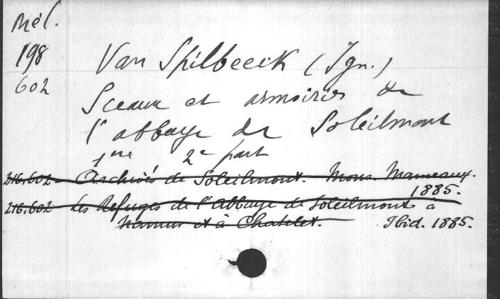 Mél.
198
602
Van Spilbeeck (Ign.)
Sceaux et armoiries de
l'abbaye de Soleilmont
1re 2e part
216.602 Archives de Soleilmont. Mons, Manceaux.
1885.
216.602 Les Refuges de l'abbaye de Soleilmont à
Namur et à Chatelet. Ibid. 1885.